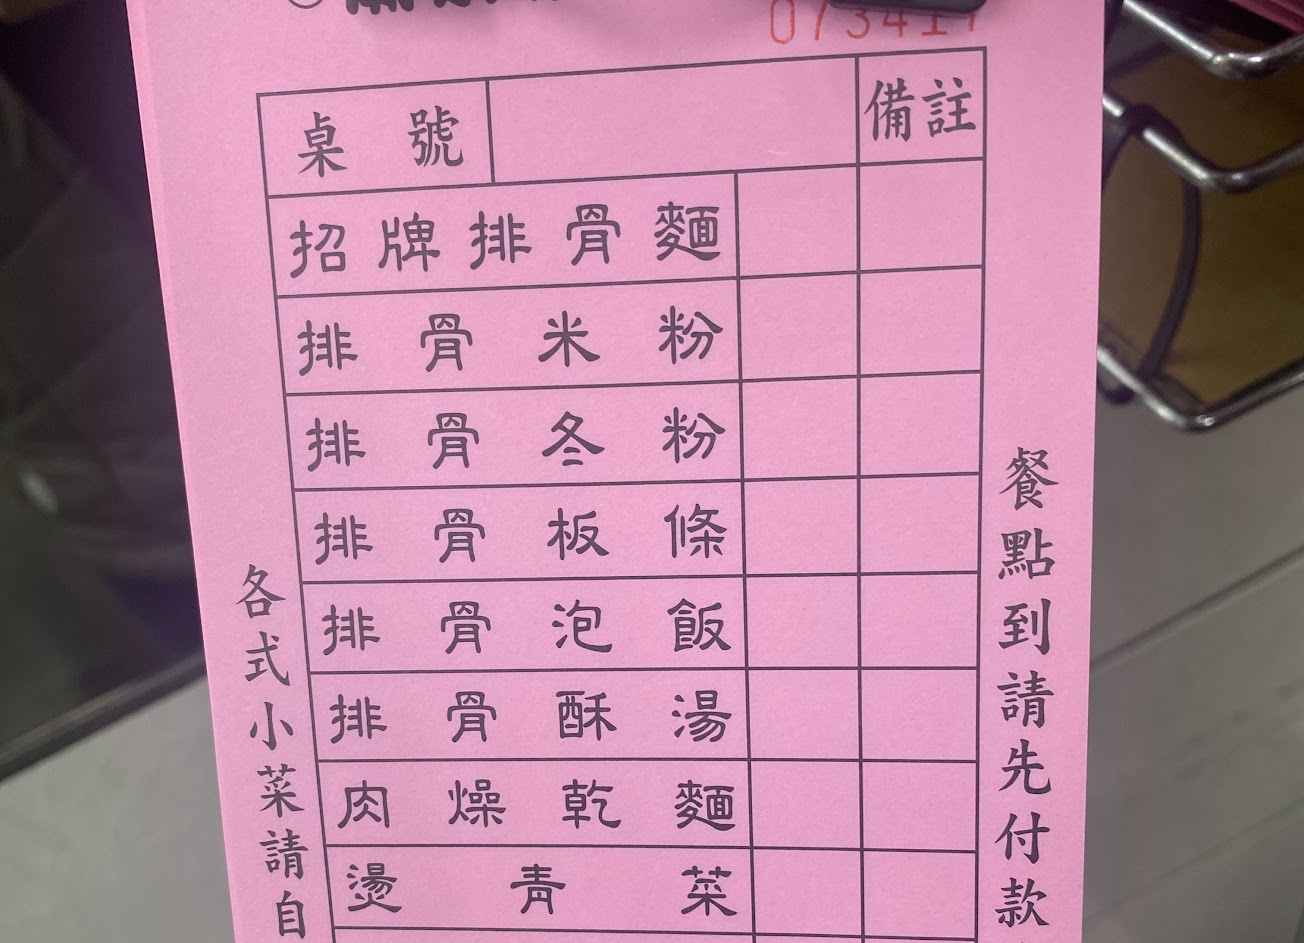 桌號 備註
招牌排骨麵
排骨米粉
排骨冬粉
排骨板條
排骨泡飯
排骨酥湯
肉燥乾麵
燙青菜
各式小菜請自
餐點到請先付款